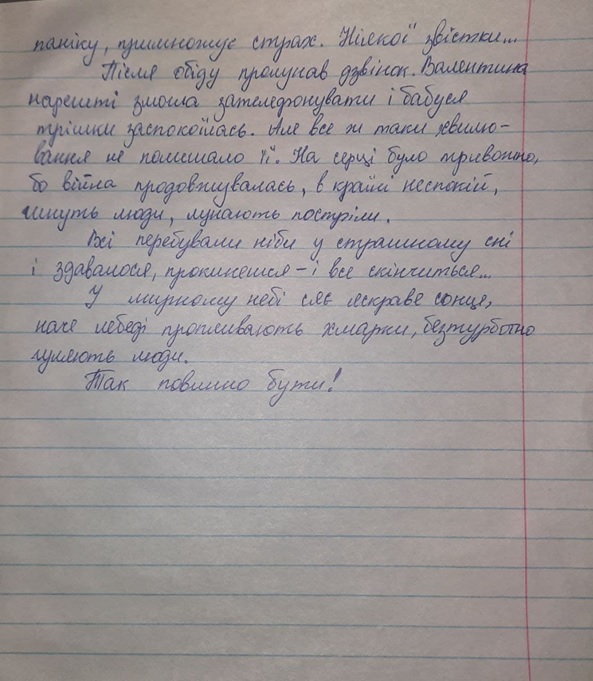 паніку, примножує страх. Ніякої звістки...
Після обіду пролунав дзвінок. Валентина
нарешті змогла зателефонувати і бабуся
трішки заспокоїлась. Але все ж таки хвилю-
вання не полишало її. На серці було тривожно,
бо війна продовжувалась, в країні неспокій,
гинуть люди, лунають постріли.
Всі перебували ніби у страшному сні
і здавалося, прокинешся - і все скінчиться...
У мирному небі сяє яскраве сонце,
наче лебеді пропливають хмарки, безтурботно
гуляють люди.
Так повинно бути!